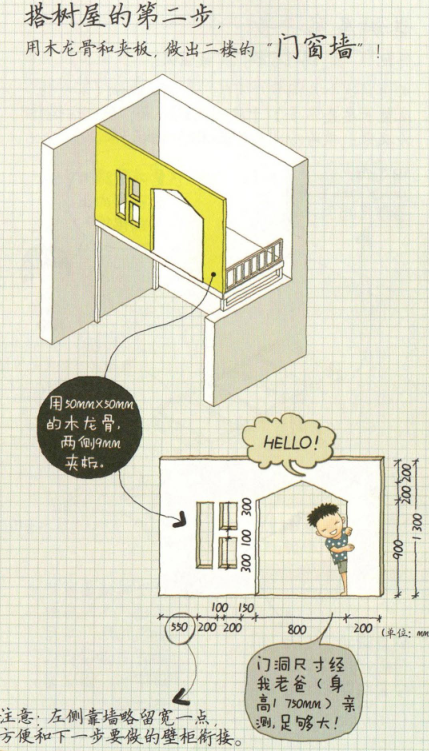 搭树屋的第二步，
用木龙骨和夹板，做出二楼的“门窗墙”！
用50mm×50mm
的木龙骨，
两侧9mm
夹板。
HELLO!
300
100
300
200
200
900
1 300
100 150
550 200 200 800 200 (单位：mm
门洞尺寸经
我老爸（身
高1 750mm）亲
测，足够大！
注意：左侧靠墙略留宽一点，
方便和下一步要做的壁柜衔接。